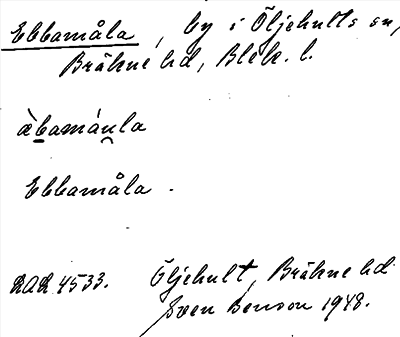 Ebbamåla, by i Öljehults sn,
Bräkne hd, Blek. l.
æ̀bamá͜ula
Ebbamåla.
RAÄ 4533. Öljehult, Bräkne hd
Sven Benson 1948.